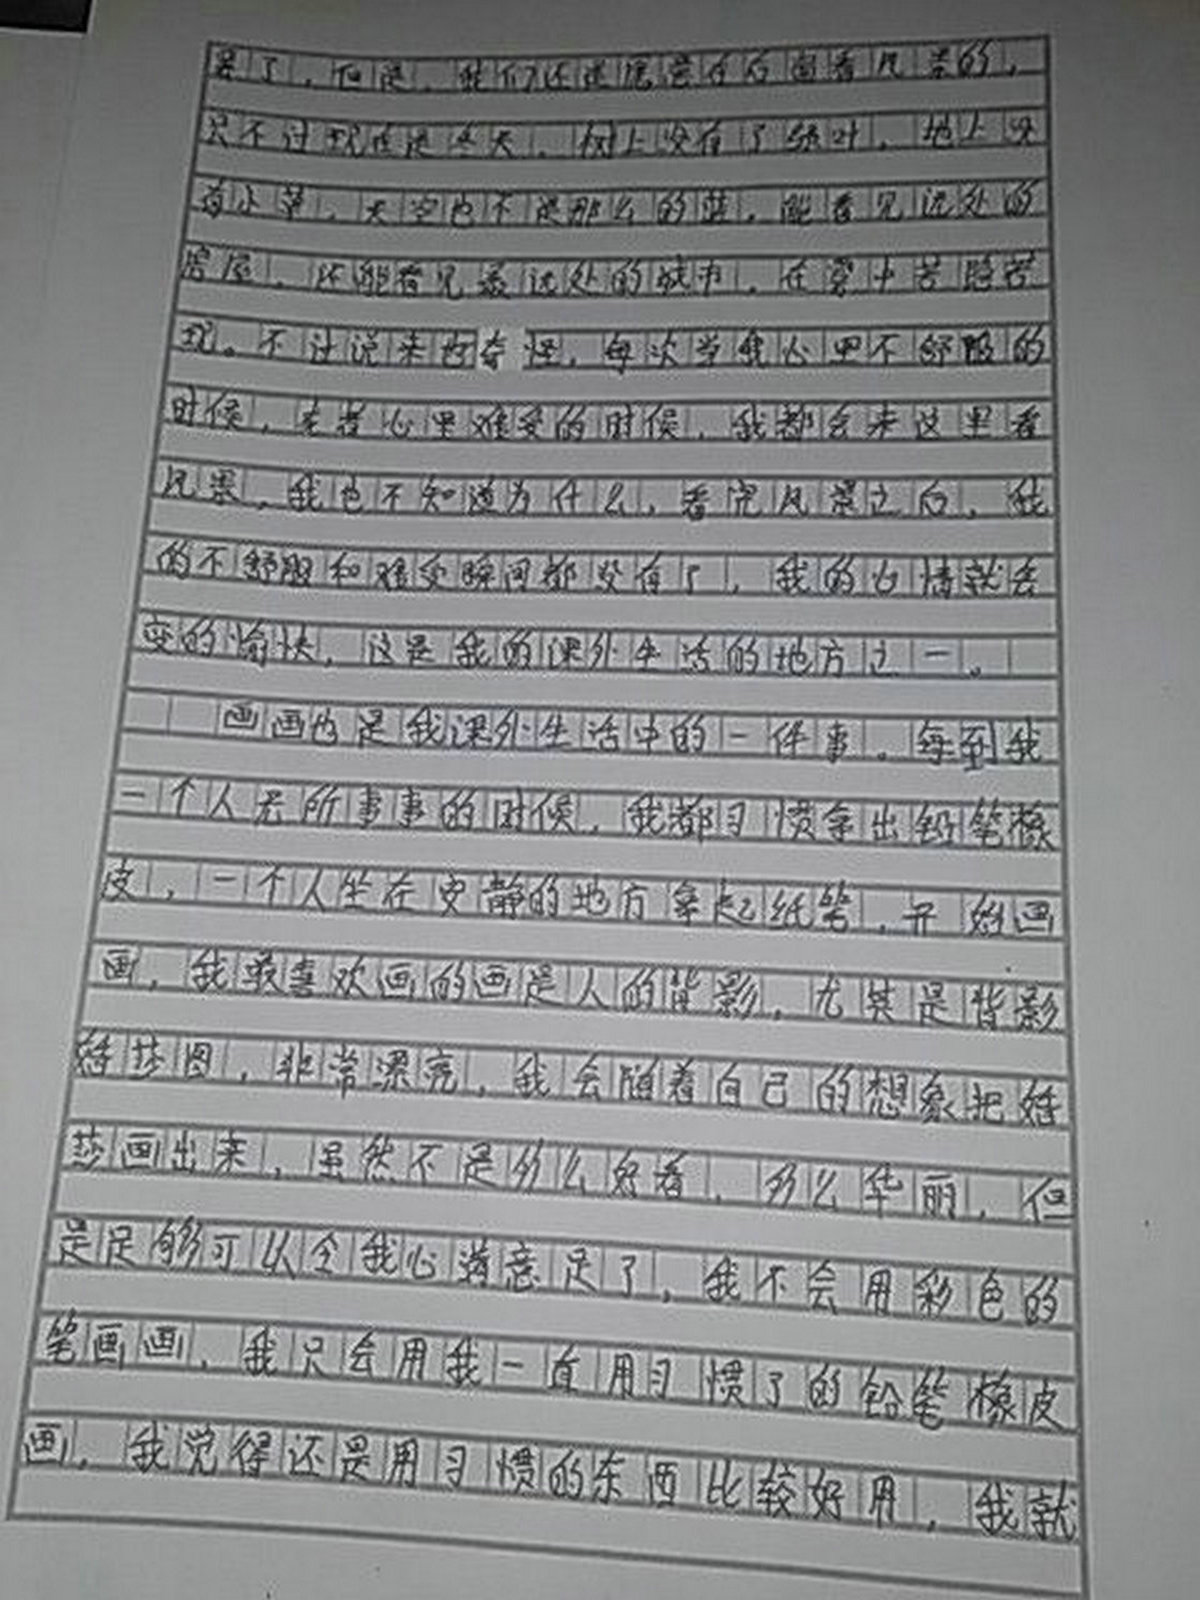 了，但是，我们还是愿意在后面看风景的，
只不过现在是冬天，树上没有了绿叶，地上没
有小草，天空也不是那么的蓝，能看见远处的
房屋，还能看见最远处的城市，在雾中若隐若
现。不过说来也奇怪，每次当我心里不舒服的
时候，或者心里难受的时候，我都会来这里看
风景，我也不知道为什么，看完风景之后，我
的不舒服和难受瞬间都没有了，我的心情就会
变的愉快，这是我的课外生活的地方之一。
画画也是我课外生活中的一件事。每到我
一个人无所事事的时候，我都习惯拿出铅笔橡
皮，一个人坐在安静的地方拿起纸笔，开始画
画，我最喜欢画的画是人的背影，尤其是背影
婚纱图，非常漂亮，我会随着自己的想象把婚
纱画出来，虽然不是多么好看，多么华丽，但
是足够可以令我心满意足了，我不会用彩色的
笔画画，我只会用我一直用习惯了的铅笔橡皮
画，我觉得还是用习惯的东西比较好用，我就